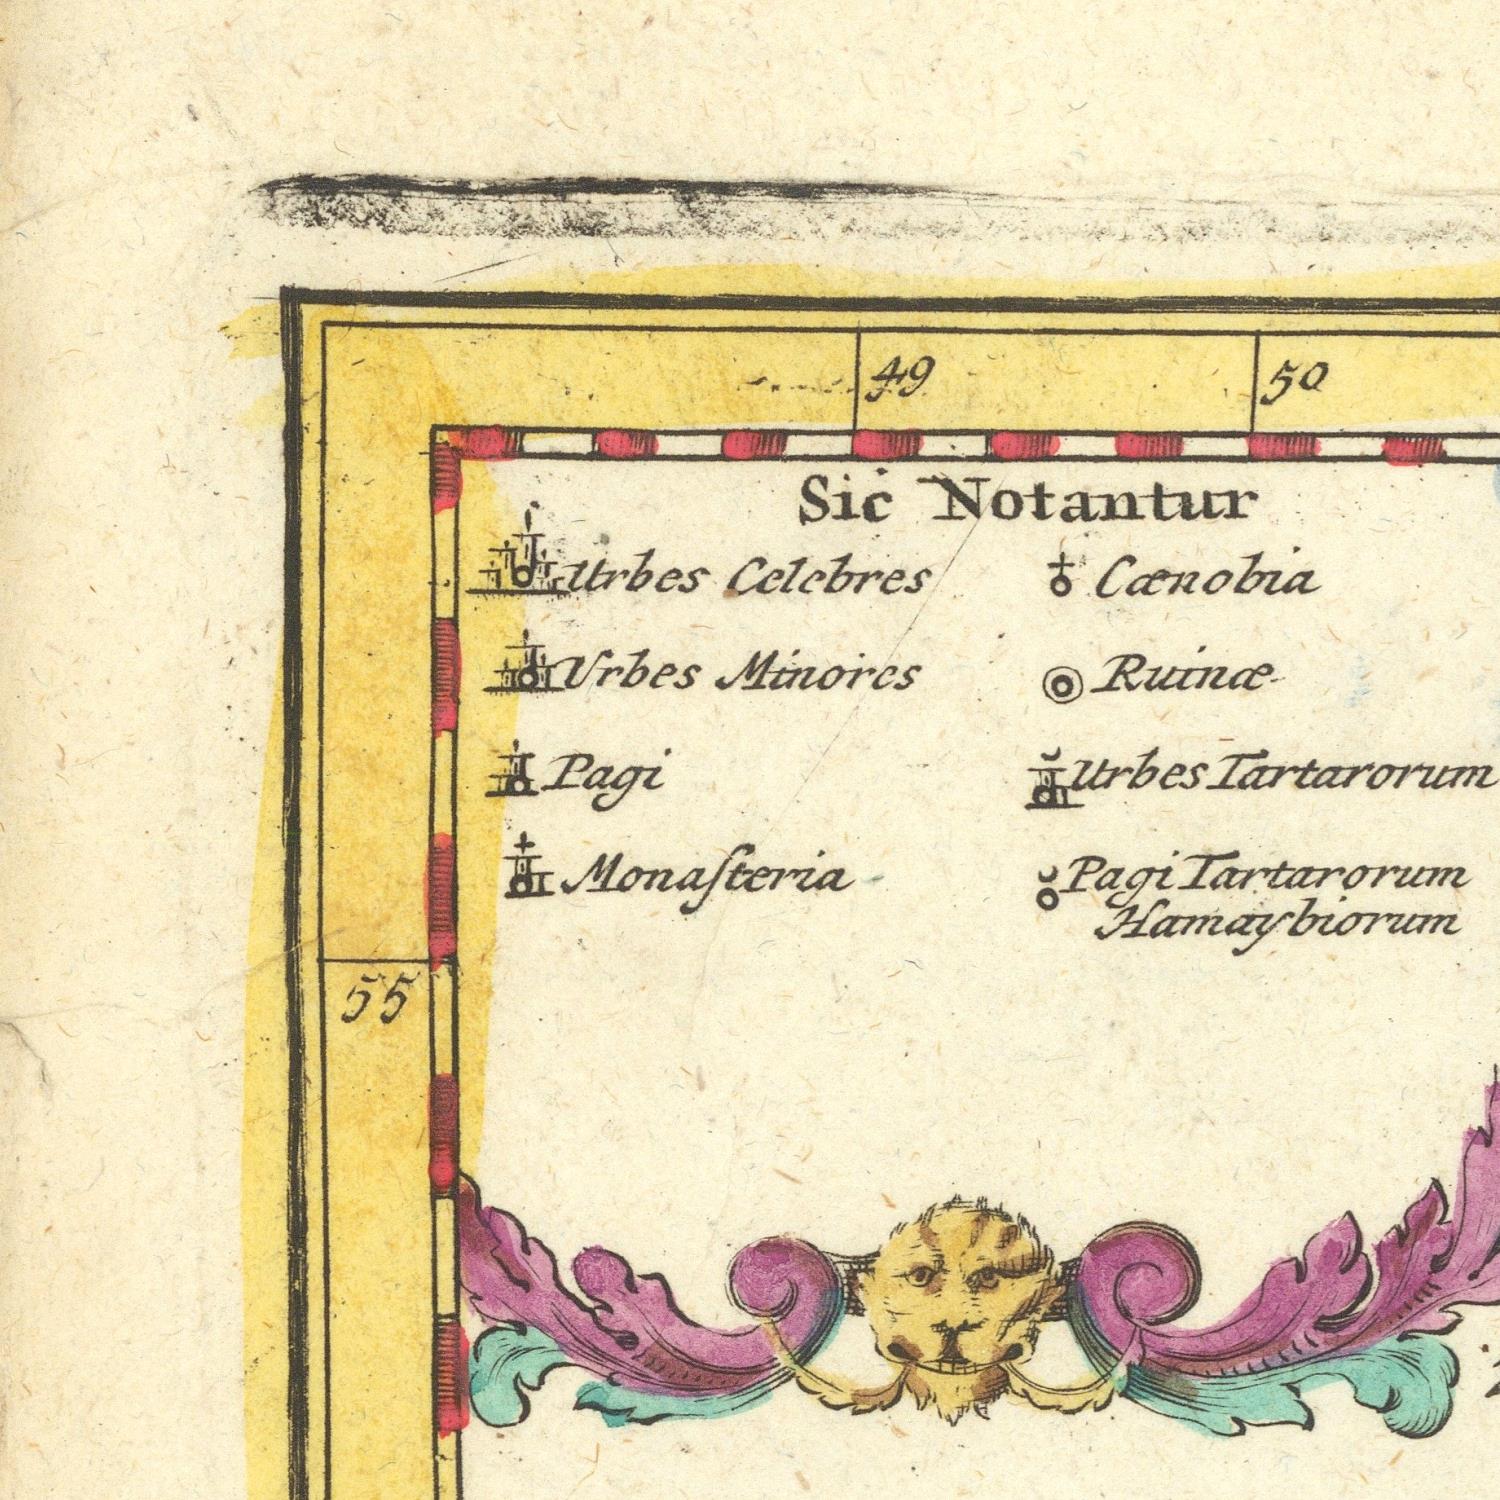 49
50
Sic Notantur
Urbes Celebres
Cœnobia
Vrbes Minores
Ruinæ
Pagi
Urbes Tartarorum
Monaſteria
Pagi Tartarorum
Hamaybiorum
55